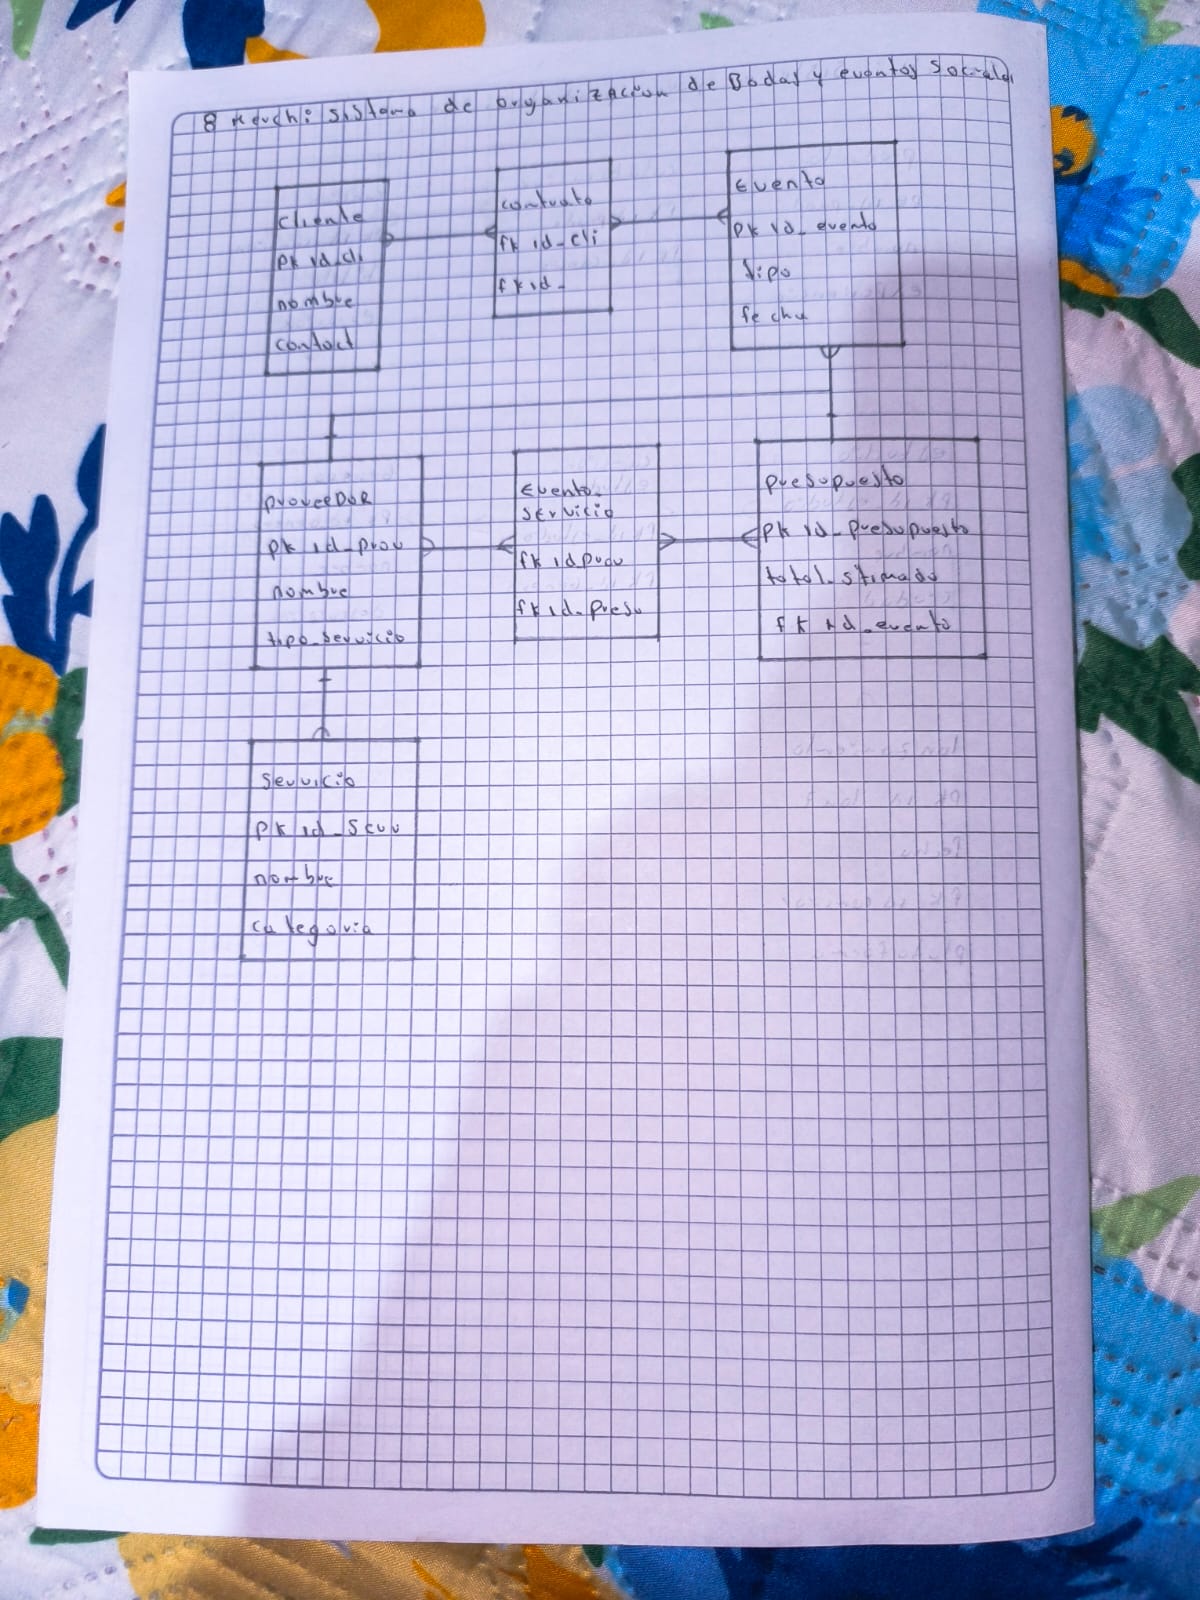 8 sistema de organización de Bodas y eventos sociales
cliente
pk id_cli
nombre
contact
contrato
fk id_cli
fk id_
Evento
pk id_evento
tipo
fecha
proveeDOR
pk id_prov
nombre
tipo_servicio
Evento_
servicio
fk id prov
fk id_presu
presupuesto
pk id_presupuesto
total_stimado
fk id_evento
servicio
pk id_serv
nombre
categoria